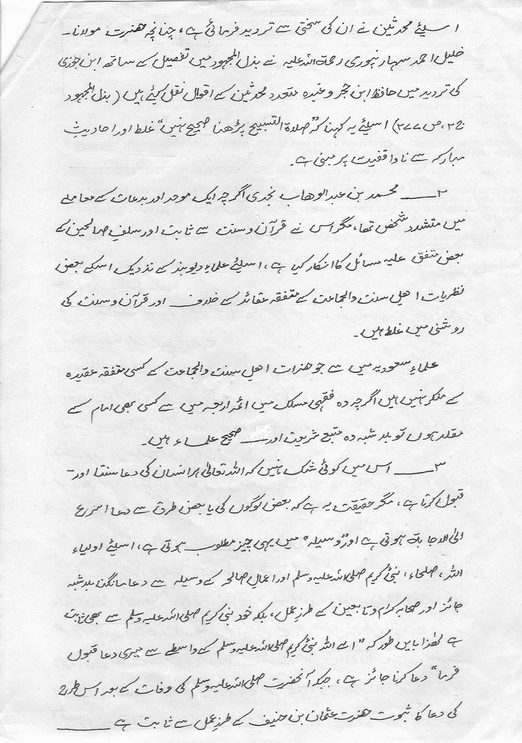 اسلئے محدثین نے ان کی سختی سے تردید فرمائی ہے، چنانچہ حضرت مولانا۔
خلیل احمد سہارنپوری رحمۃ اللہ علیہ نے بذل المجہود میں تفصیل کے ساتھ ابن جوزی
کی تردید میں حافظ ابن حجر وغیرہ متعدد محدثین کے اقوال نقل کئے ہیں (بذل المجہود
ج۲، ص ۲۷۷) اسلئے یہ کہنا کہ "صلاۃ التسبیح پڑھنا صحیح نہیں" غلط اور احادیثِ
مبارکہ سے ناواقفیت پر مبنی ہے۔
۲ــــ محمد بن عبدالوھاب نجدی اگرچہ ایک موحد اور بدعات کے معاملے
میں متشدد شخص تھا، مگر اس نے قرآن وسنت سے ثابت اور سلفِ صالحین کے
بعض متفق علیہ مسائل کا انکار کیا ہے، اسلئے علماءِ دیوبند کے نزدیک اسکے بعض
نظریات اھلِ سنت والجماعت کے متفقہ عقائد کے خلاف اور قرآن وسنت کی
روشنی میں غلط ہیں۔
علماءِ سعودیہ میں سے جو حضرات اھلِ سنت والجماعت کے کسی متفقہ عقیدہ
کے منکر نہیں ہیں اگرچہ وہ فقہی مسلک میں ائمہ اربعہ میں سے کسی بھی امام کے
مقلد ہوں تو بلاشبہ وہ متبعِ شریعت اور صحیح علماء ہیں۔
۳ــــ اس میں کوئی شک نہیں کہ اللہ تعالیٰ ہر انسان کی دعا سنتا اور۔
قبول کرتا ہے، مگر حقیقت یہ ہے کہ بعض لوگوں کی یا بعض طرق سے دعا اسرع
الی الاجابۃ ہوتی ہے اور "وسیلہ" میں یہی چیز مطلوب ہوتی ہے، اسلئے اولیاء
اللہ، صلحاء، نبی کریم صلی اللہ علیہ وسلم اور اعمالِ صالحہ کے وسیلہ سے دعا مانگنا بلاشبہ
جائز اور صحابہ کرام وتابعین کے طرزِ عمل، بلکہ خود نبی کریم صلی اللہ علیہ وسلم سے بھی ثابت
ہے لھٰذا بایں طور کہ "اے اللہ نبی کریم صلی اللہ علیہ وسلم کے واسطے سے میری دعا قبول
فرما" دعا کرنا جائز ہے، جبکہ آنحضرت صلی اللہ علیہ وسلم کی وفات کے بعد اس طرح
کی دعا کا ثبوت حضرت عثمان بن حنیف کے طرزِ عمل سے ثابت ہے ــــــ